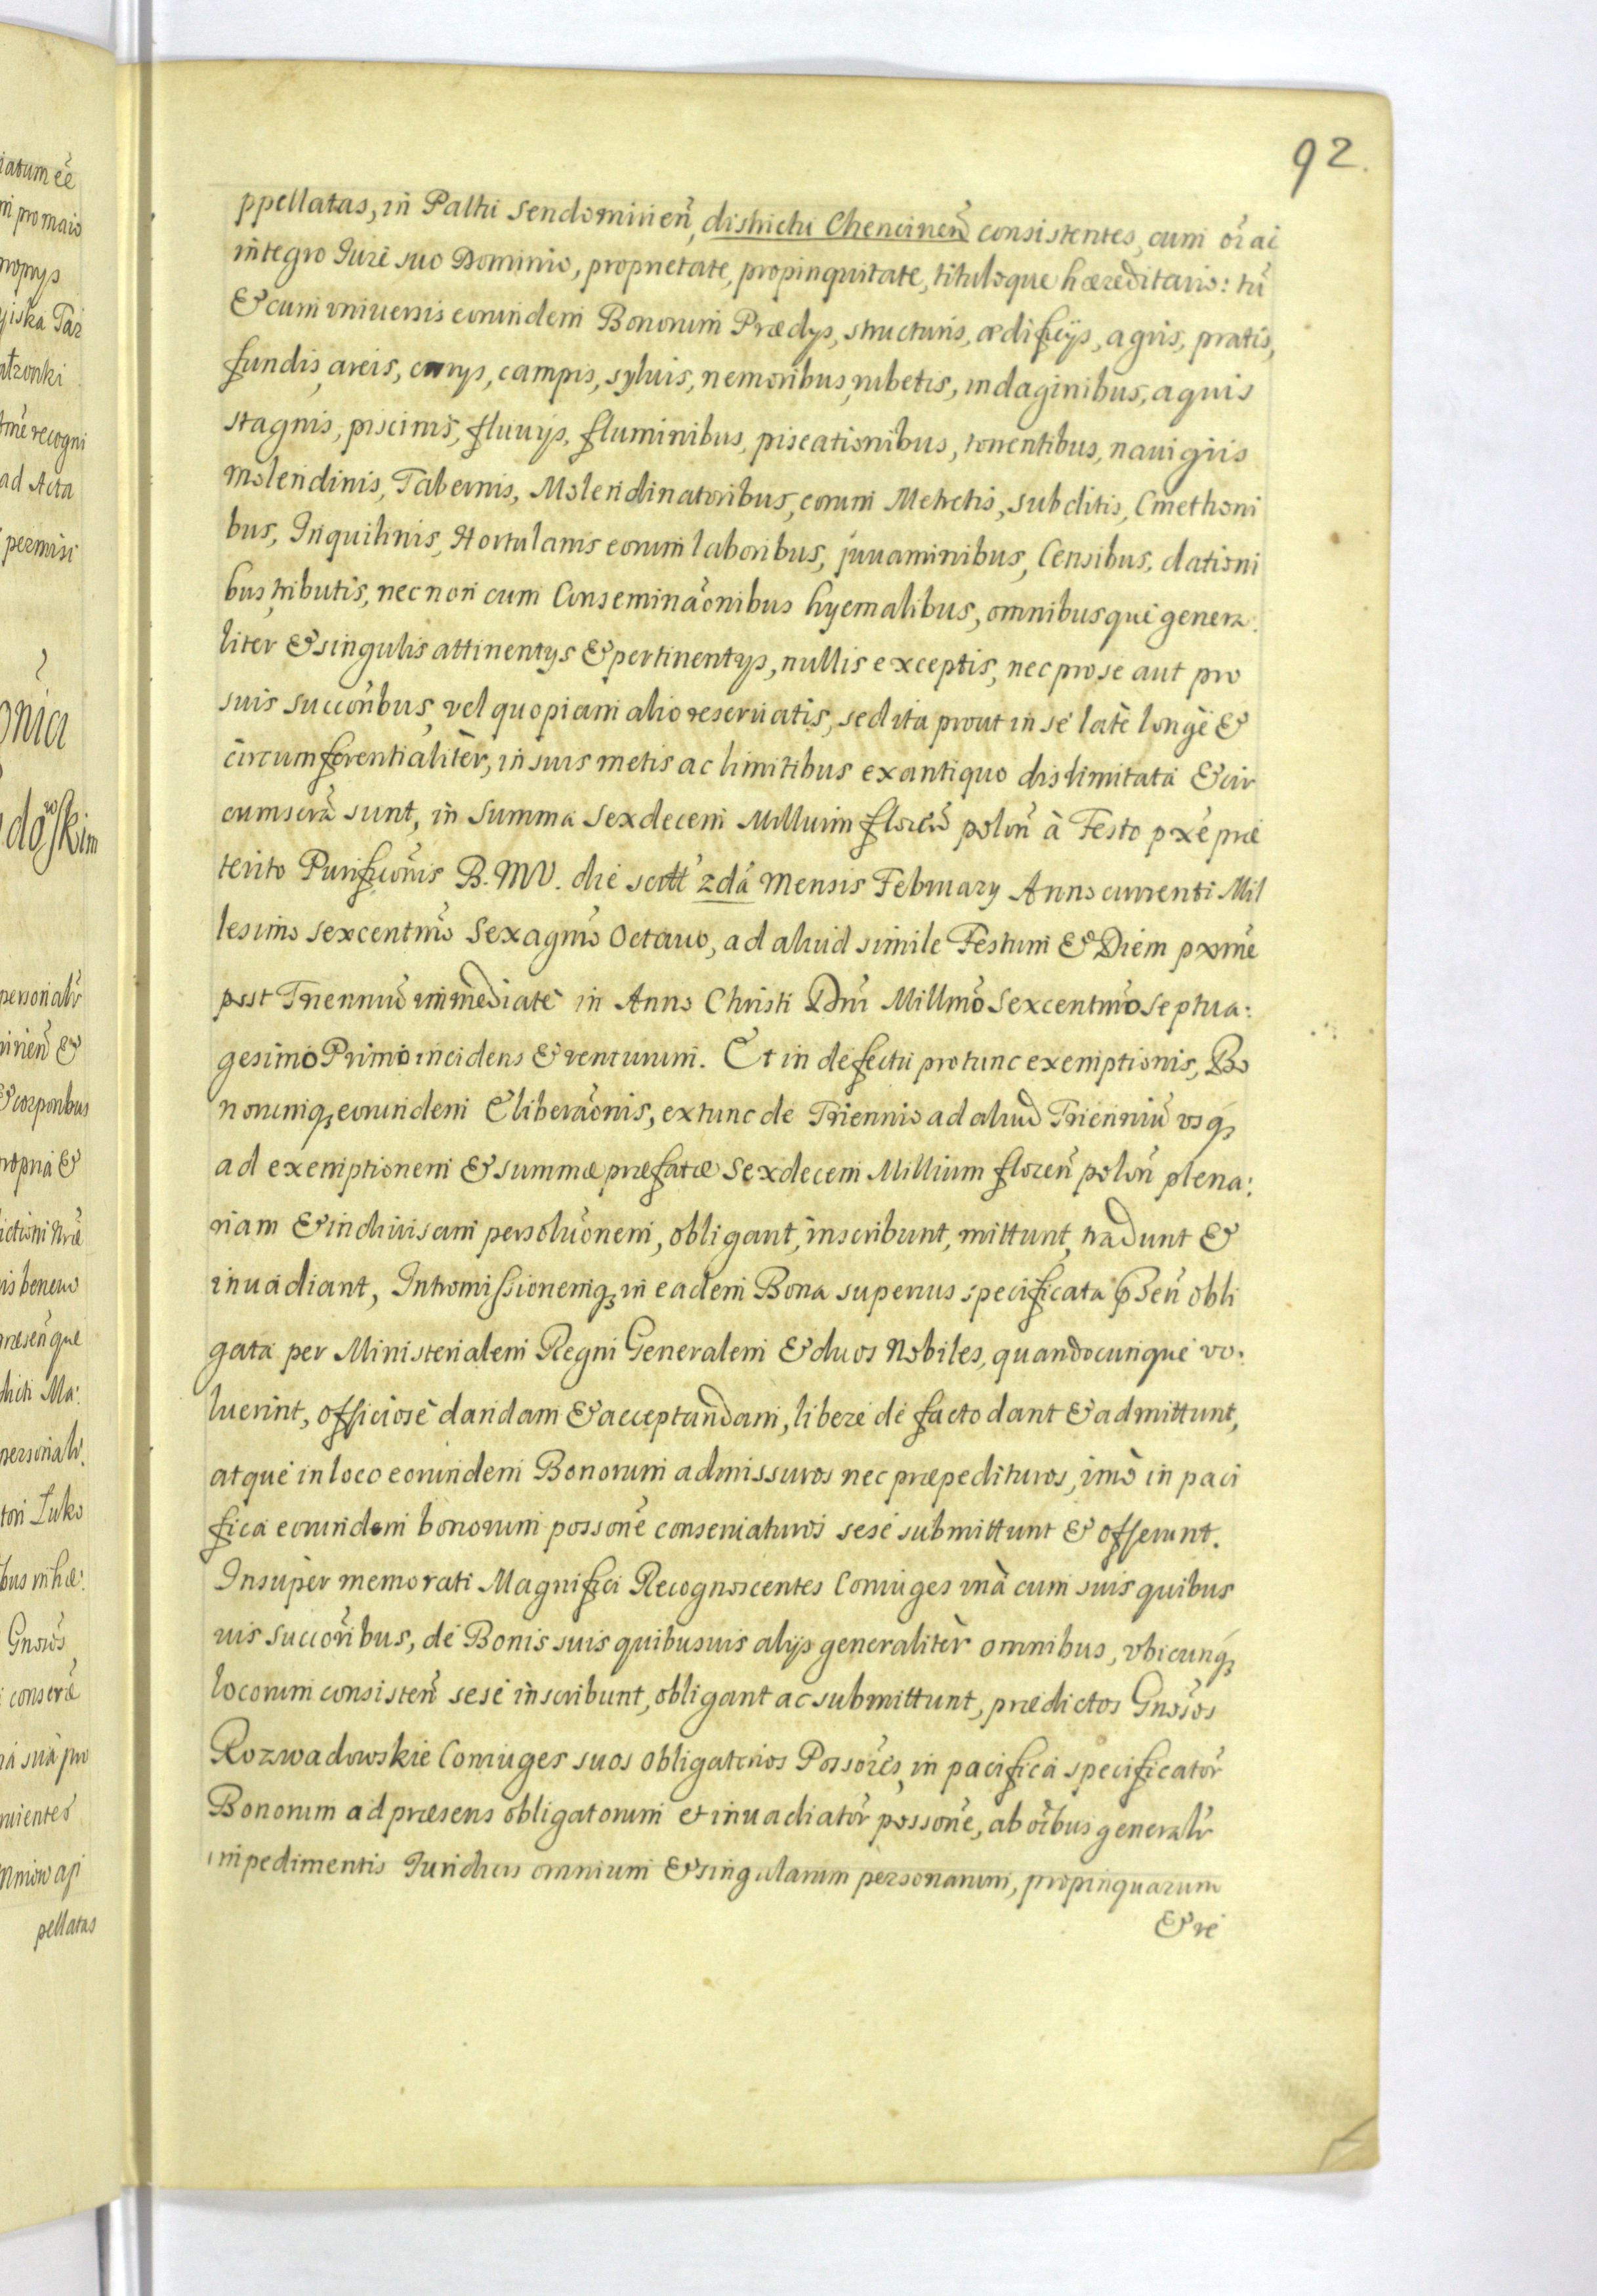 92.
ppellatas, in Palttu Sendomirien̄, districtu Chencinen̄ consistentes, cum or̄ ac
integro Iure suo Dominio, proprietate, propinquitate, tituloque hæreditario: tū
& cum vniuersis eorundem Bonorum Prædys, structuris, ædificijs, agris, pratis,
fundis, areis, curys, campis, syluis, nemoribus, rubetis, indaginibus, aquis
stagnis, piscinis, fluuijs, fluminibus, piscationibus, torrentibus, nauigiis
molendinis, Tabernis, Molendinatoribus, eorum Metretis, subditis, Cmethoni
bus, Inquilinis, Hortulanis eorum laboribus, juuaminibus, Censibus, dationi
bus, tributis, nec non cum Consemināonibus hyemalibus, omnibusque genera:
liter & singulis attinentys & pertinentys, nullis exceptis, nec pro se aut pro
suis succōribus, vel quopiam alio reseruatis, sed ita prout in se latè longè &
circumferentialitèr, in suis metis ac limitibus ex antiquo dislimitata & cir
cumscrā sunt, in Summa Sexdecem Millium floren̄ polon̄ à Festo pxē præ
terito Purificōnis B. MV. die scilt 2dā Mensis February Anno currenti Mil
lesimo sexcentm̄o Sexagm̄o Octauo, ad aliud simile Festum & Diem pxm̄e
post Trienniū immediatè in Anno Christi Dn̄i Millm̄o Sexcentm̄o Septua:
gesimo Primo incidens & venturum. Et in defectu pro tunc exemptionis, Bo
norumq; eorundem Eliberāonis, extunc de Triennio ad aliud Trienniū vsq;
ad exemptionem & summæ præfatæ Sexdecem Millium floren̄ polon̄ plena:
riam & indiuisam persolūonem, obligant, inscribunt, mittunt, tradunt &
inuadiant, Intromissionemq; in eadem Bona superius specificata p̄sen̄ obli
gata per Ministerialem Regni Generalem & duos Nobiles, quandocunque vo:
luerint, officiosè dandam & acceptandam, libere de facto dant & admittunt,
atque in loco eorundem Bonorum admissuros nec præpedituros, imò in paci
fica eorundem bonorum possonē conseruaturos sese submittunt & offerunt.
Insuper memorati Magnifici Recognoscentes Coniuges vnà cum suis quibus
uis succōribus, de Bonis suis quibusuis alijs generalitèr omnibus, vbicunq;
locorum consisten̄ sese inscribunt, obligant ac submittunt, prædictos Gnōsos
Rozwadowskie Coniuges suos obligatorios Possorēs, in pacifica specificator̄
Bonorum ad præsens obligatorum et inuadiator̄ possonē, ab or̄ibus generalr̄
impedimentis Iuridicis omnium & singularum personarum, propinquarum
& re